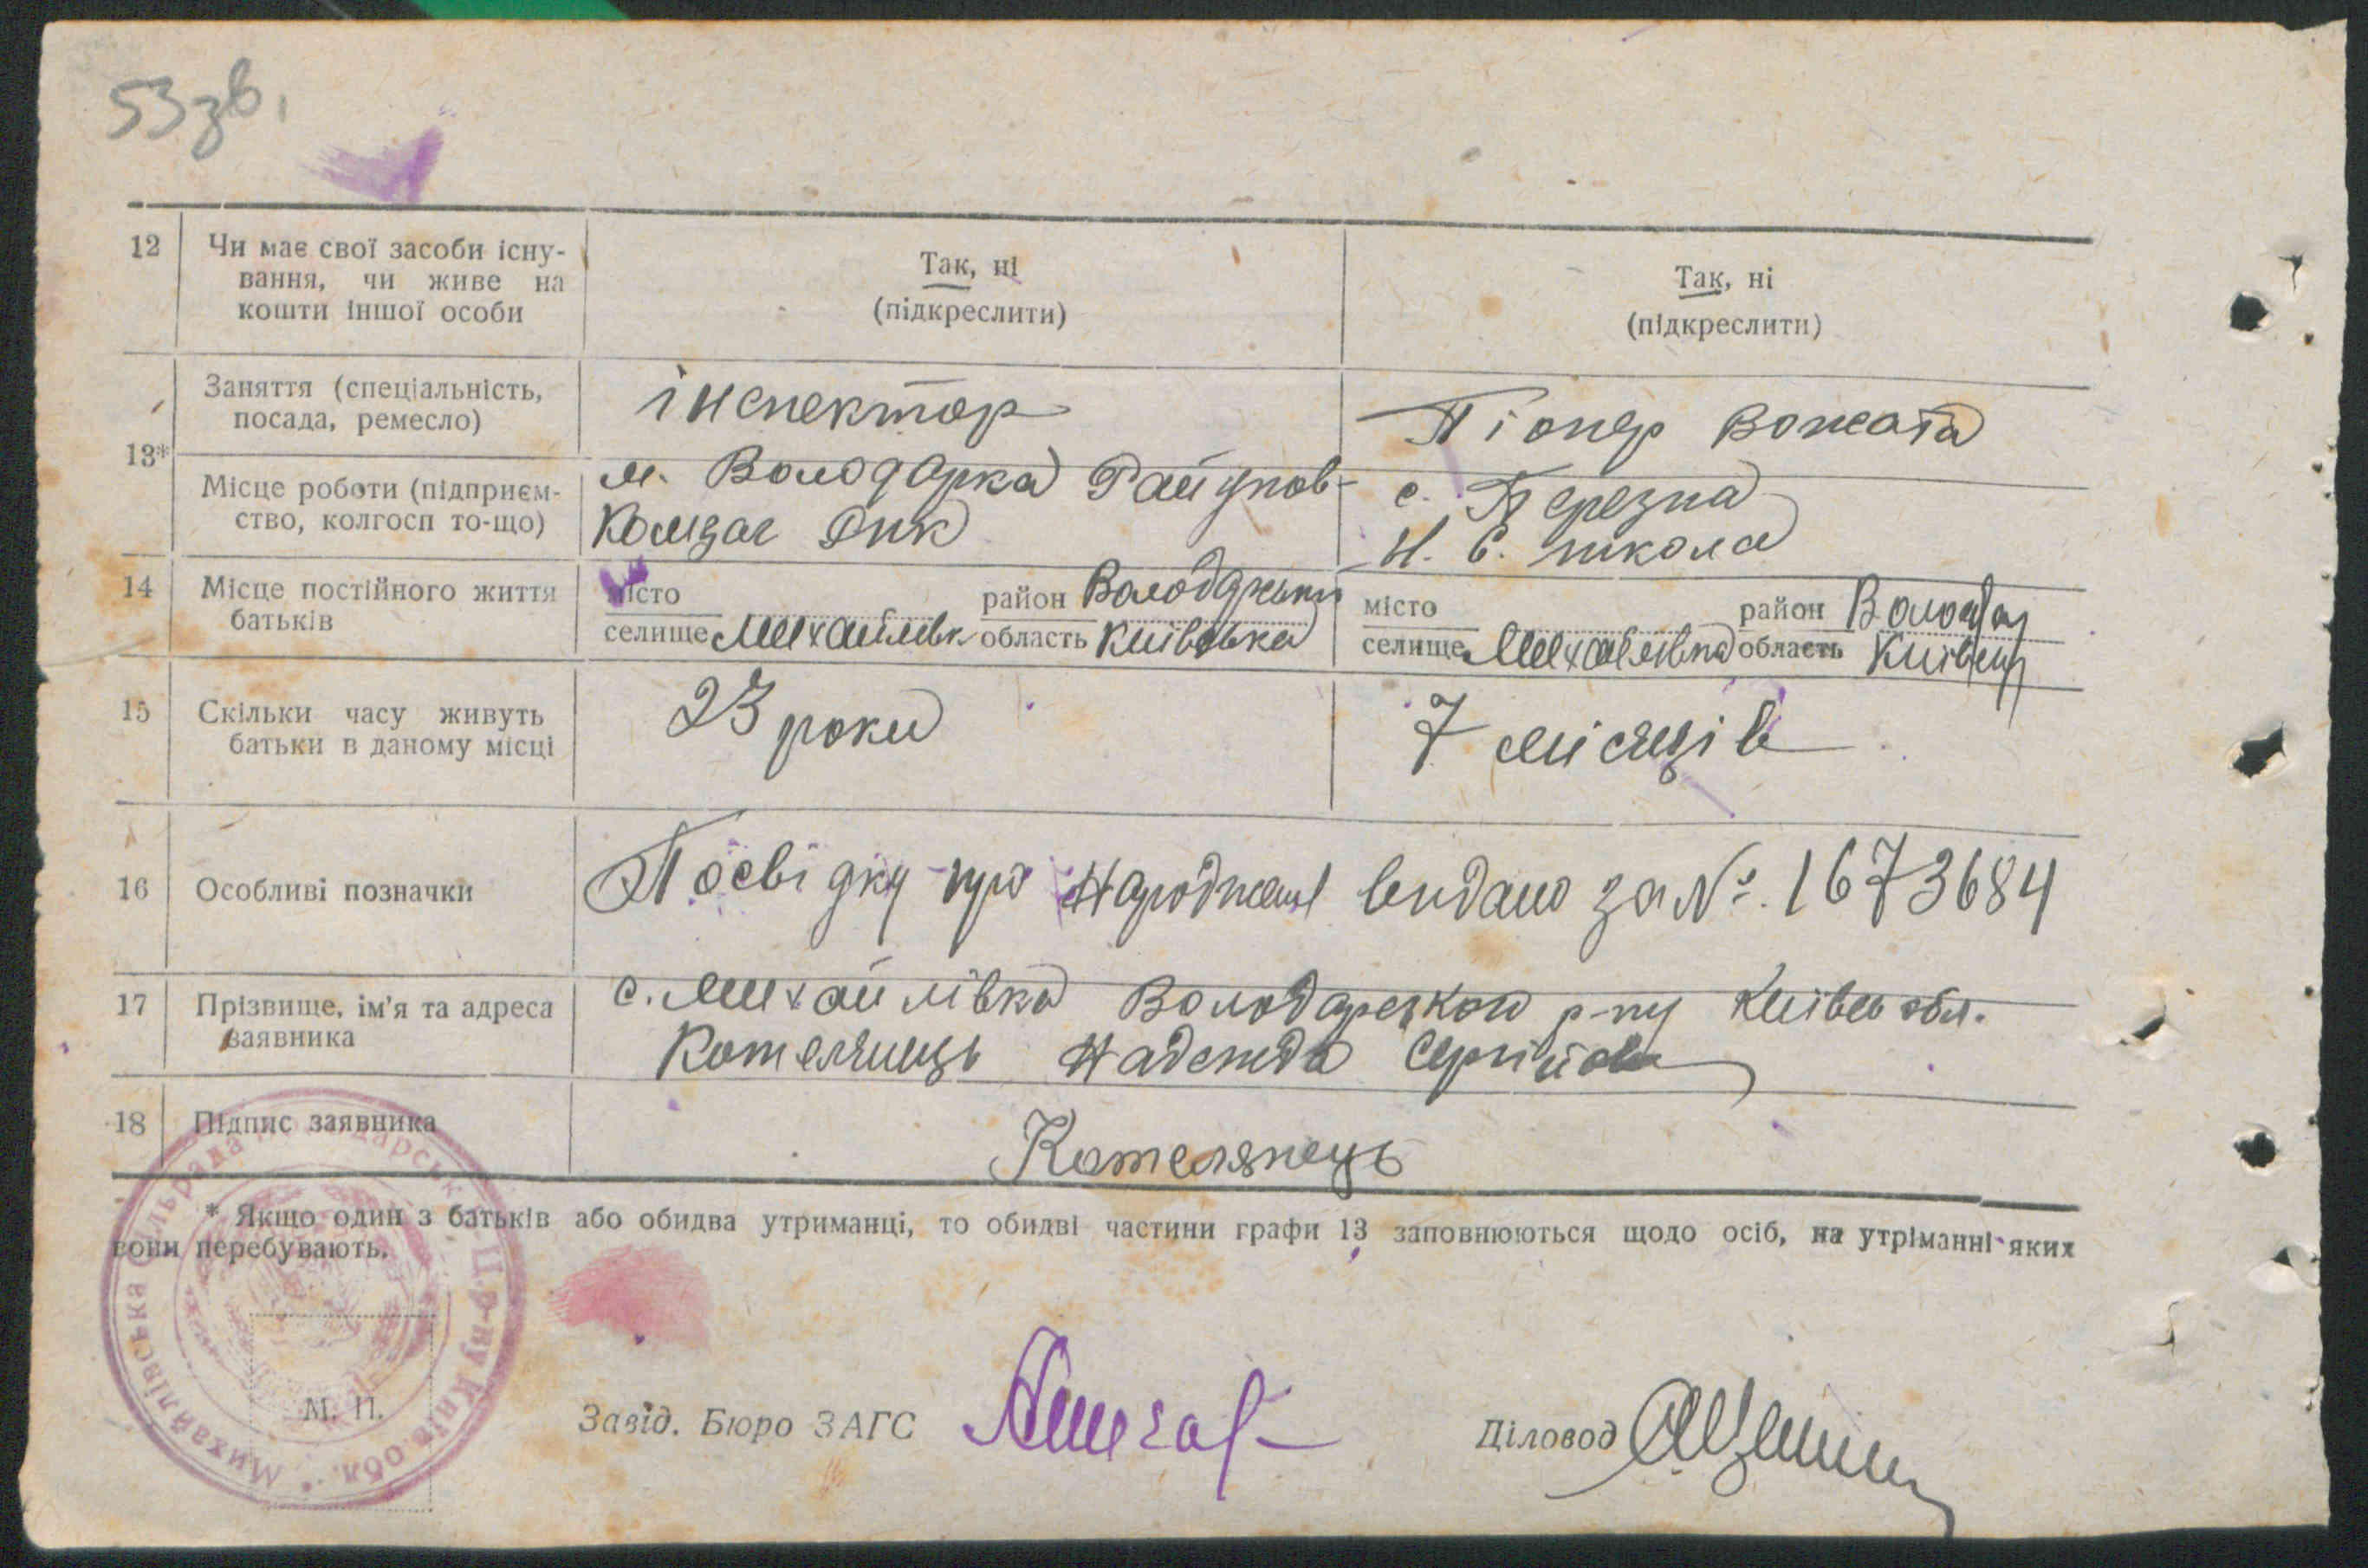 53 зв.
12 Чи має свої засоби існу-
вання, чи живе на
кошти іншої особи
Так, ні
(підкреслити)
Так, ні
(підкреслити)
13*
Заняття (спеціальність,
посада, ремесло)
інспектор
Піонер Вожата
Місце роботи (підприєм-
ство, колгосп то-що)
м. Володарка Райупов-
Комзаг
с. Березна
Н. С. школа
14 Місце постійного життя
батьків
місто
селище Михайлівк
район Володарськи
область Київська
місто
селище Михайлівка
район Володар
область
15 Скільки часу живуть
батьки в даному місці
23 роки
7 місяців
16 Особливі позначки
Посвідку про народжен видано за №. 1673684
17 Прізвище, ім'я та адреса
заявника
с. Михайлівка Володарського р-ну Київсь обл.
Котелянець Надежда Сергійов
18 Підпис заявника
Котелянець
* Якщо один з батьків або обидва утриманці, то обидві частини графи 13 заповнюються щодо осіб, на утріманні яких
вони перебувають.
Михайлівська сільрада Володарськ р-ну Київ. обл.
М. П.
Завід. Бюро ЗАГС
Діловод